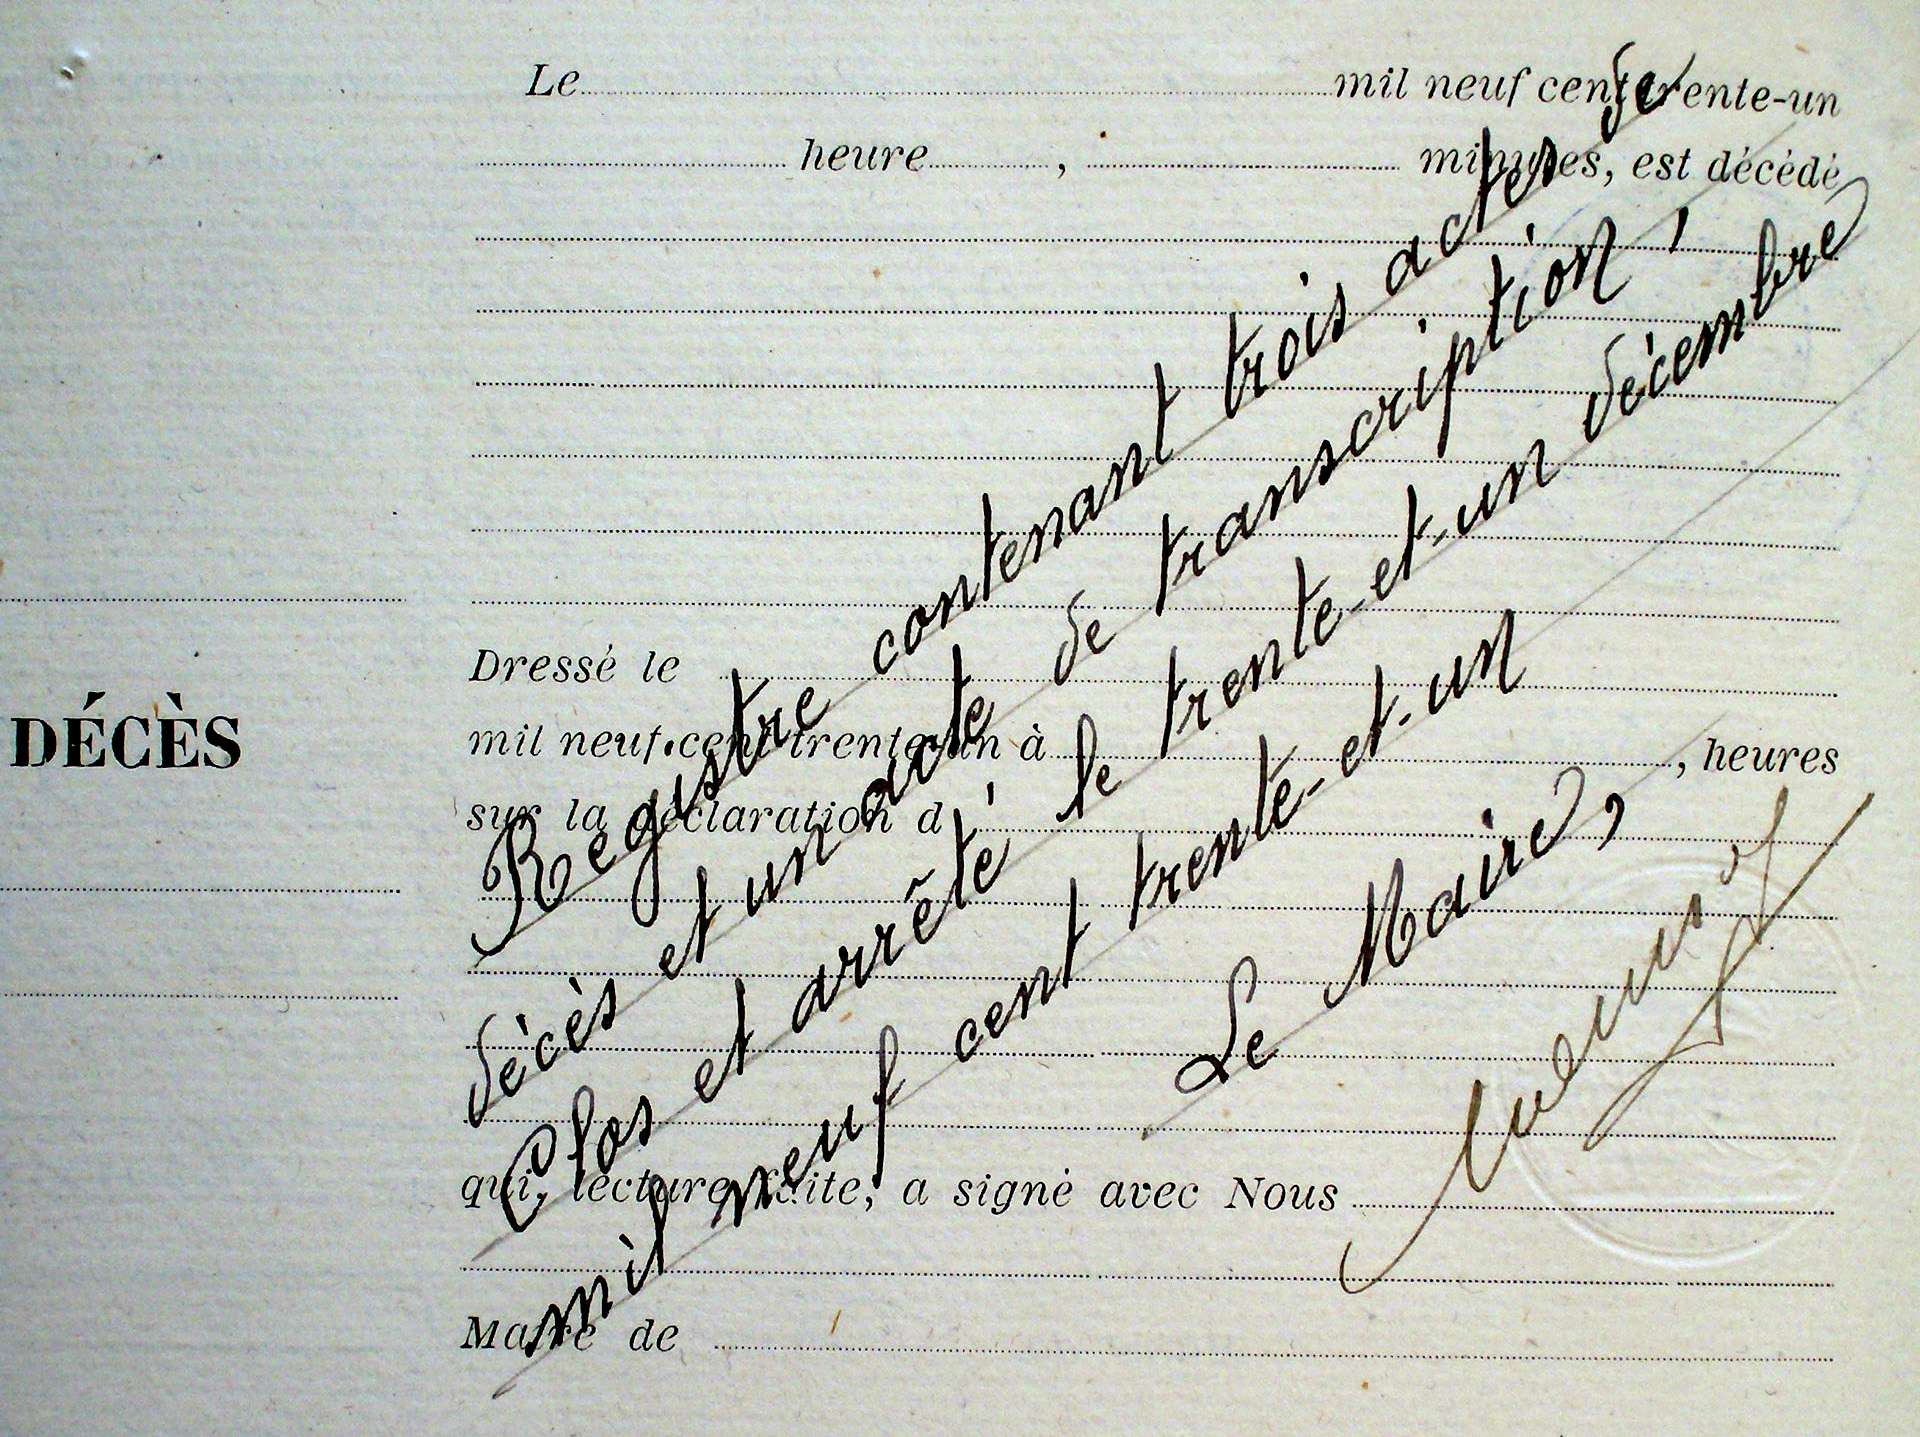 Le mil neuf cent trente-un
heure , minutes, est décédé
Dressé le
DÉCÈS
mil neuf cent trente-un à , heures
sur la déclaration d
qui, lecture faite, a signé avec Nous
Maire de
Registre contenant trois actes de
décès et un acte de transcription,
Clos et arrêté le trente-et-un décembre
mil neuf cent trente-et-un
Le Maire,